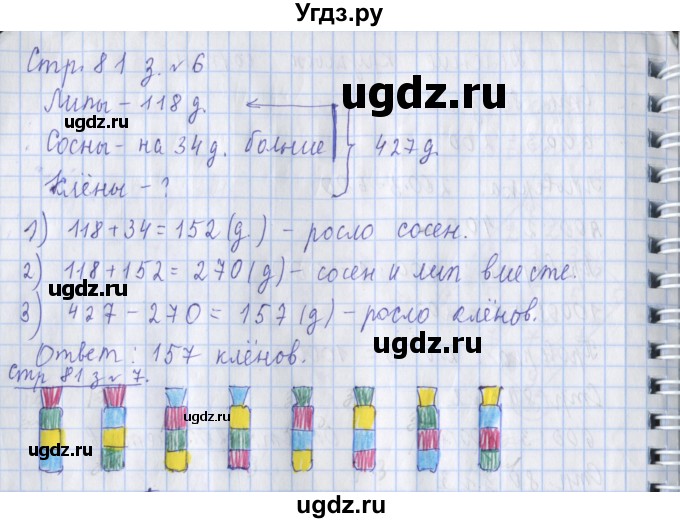 Угдз.ру
Стр. 81 з. №6
Липы - 118 д.
ugdz.ru
ugdz.ru
Сосны - на 34 д. больше
427 д.
Клёны - ?
1) 118 + 34 = 152 (д) - росло сосен.
2) 118 + 152 = 270 (д) - сосен и лип вместе.
ugdz.ru
3) 427 - 270 = 157 (д) - росло клёнов.
ugdz.ru
Ответ: 157 клёнов.
Стр 81 з № 7.
ugdz.ru
ugdz.ru
ugdz.ru
ugdz.ru